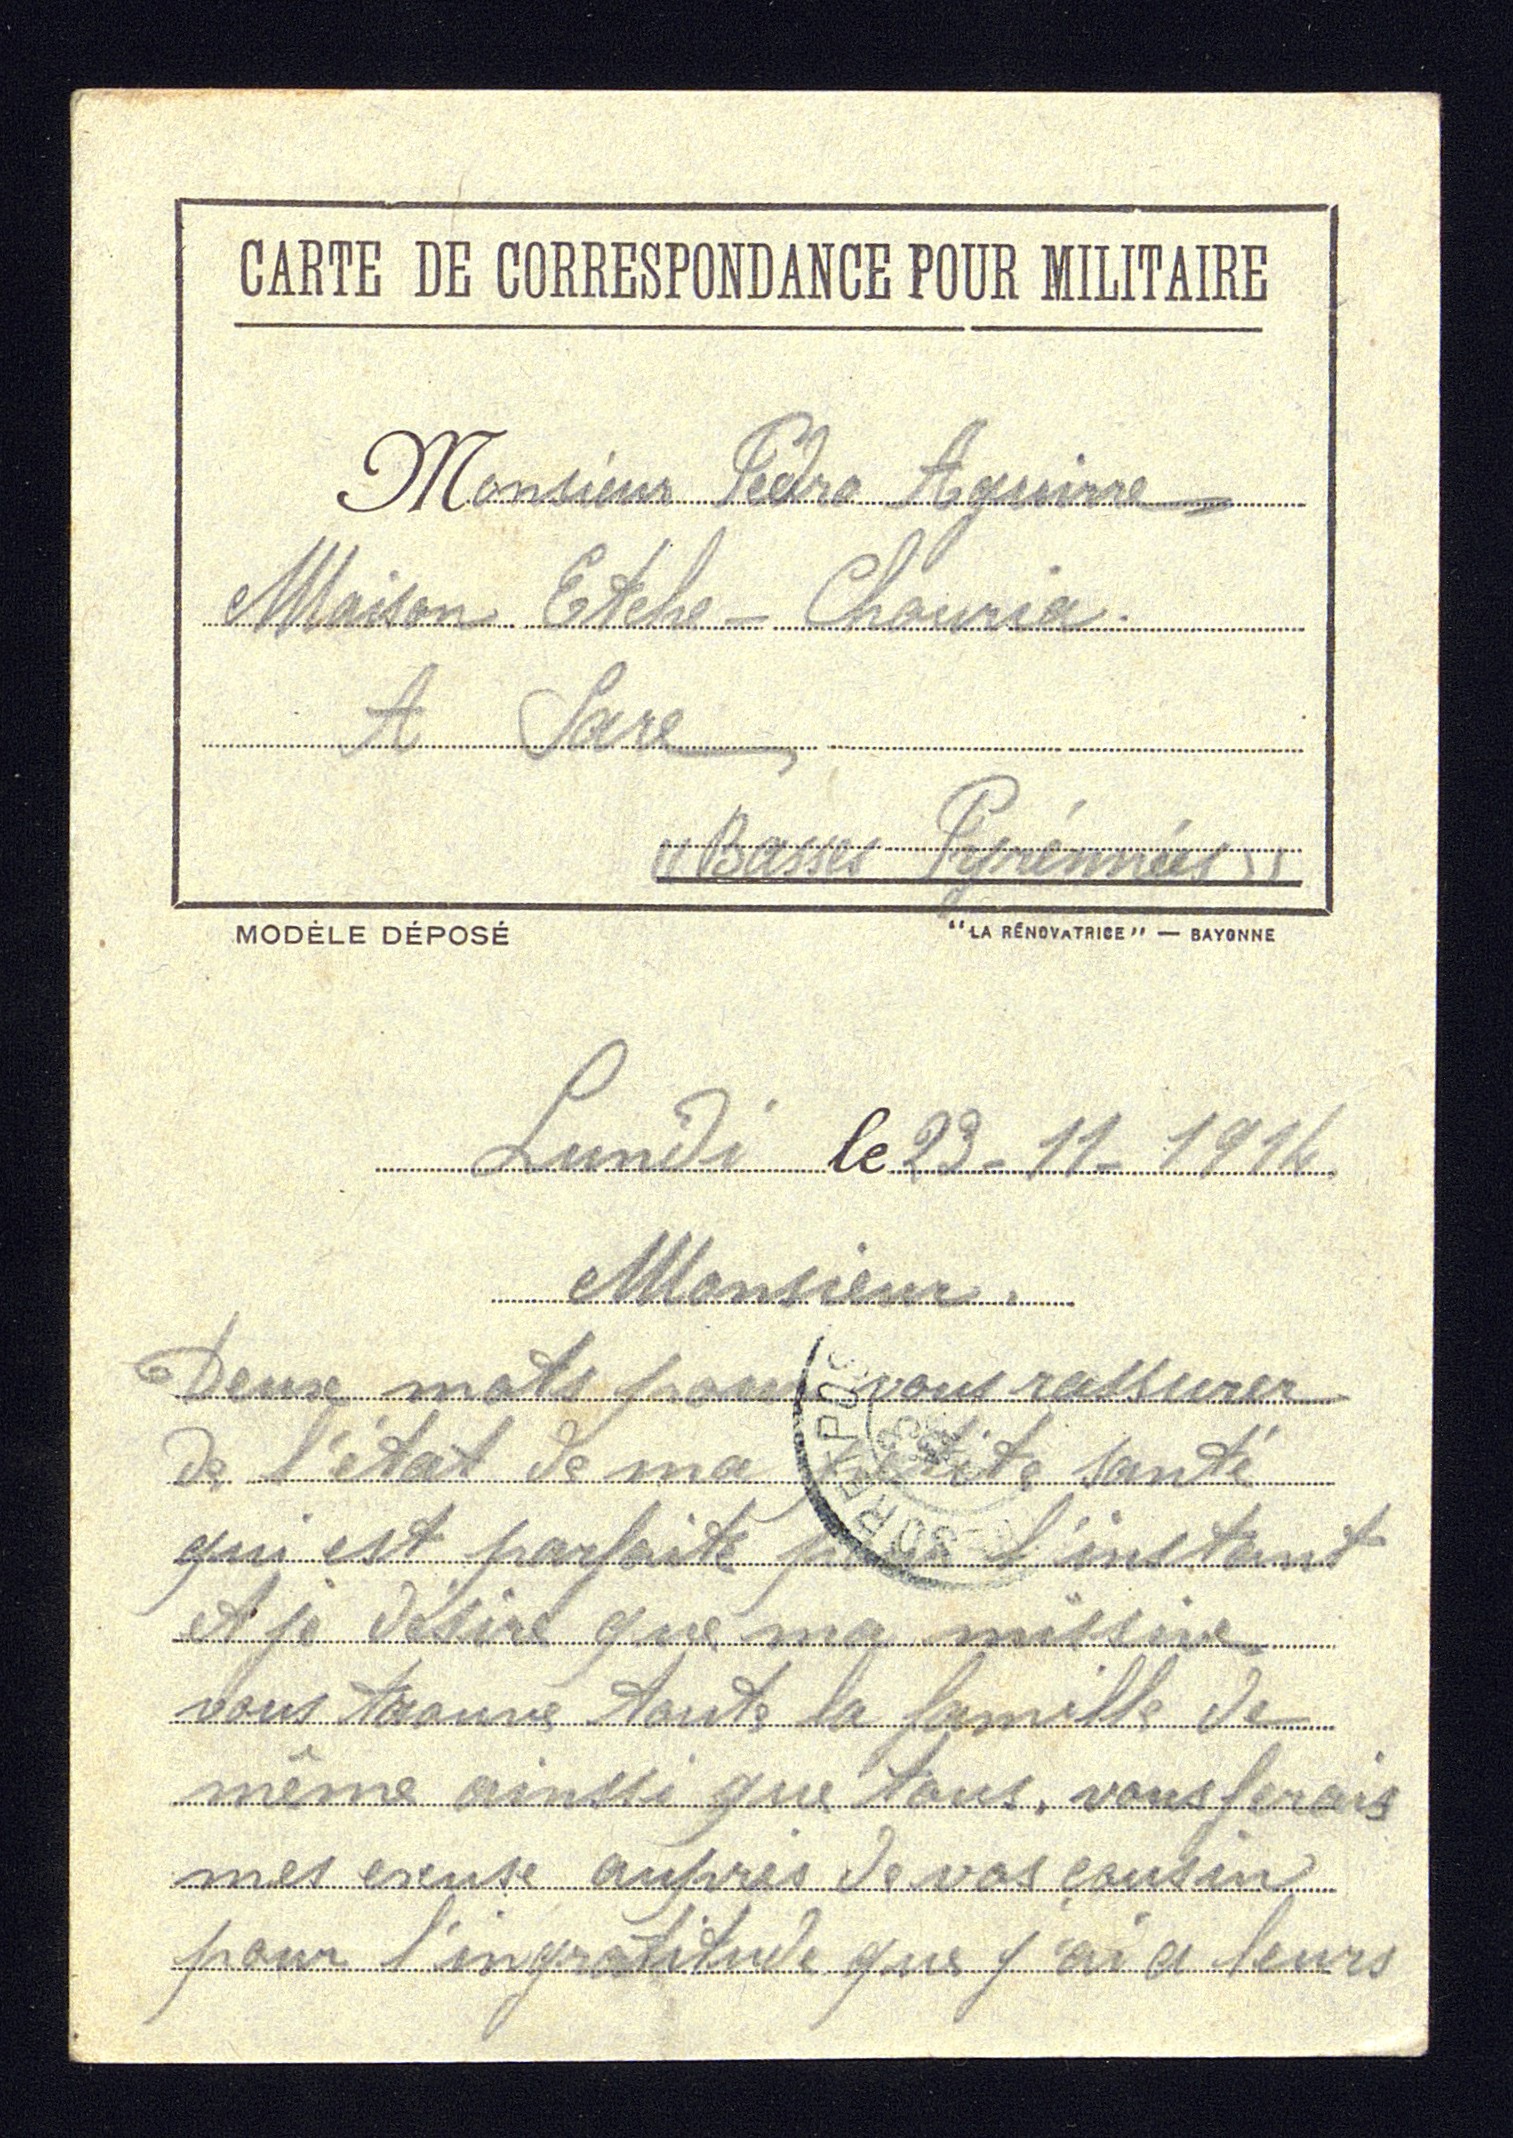 CARTE DE CORRESPONDANCE POUR MILITAIRE
Monsieur Pedro Aguirre
Maison Etche - Chouria.
A Sare,
"Basses Pyrénnées"
MODÈLE DÉPOSÉ
"LA RÉNOVATRICE" — BAYONNE
Lundi le 23-11-1914.
Monsieur.
Deux mots pour vous rassurer
de l'état de ma petite santé
qui est parfaite pour l'instant
et je désire que ma missive
vous trouve toute la famille de
même ainssi que tous. vous ferais
mes excuse auprès de vos cousin
pour l'ingratitude que j'ai a leurs